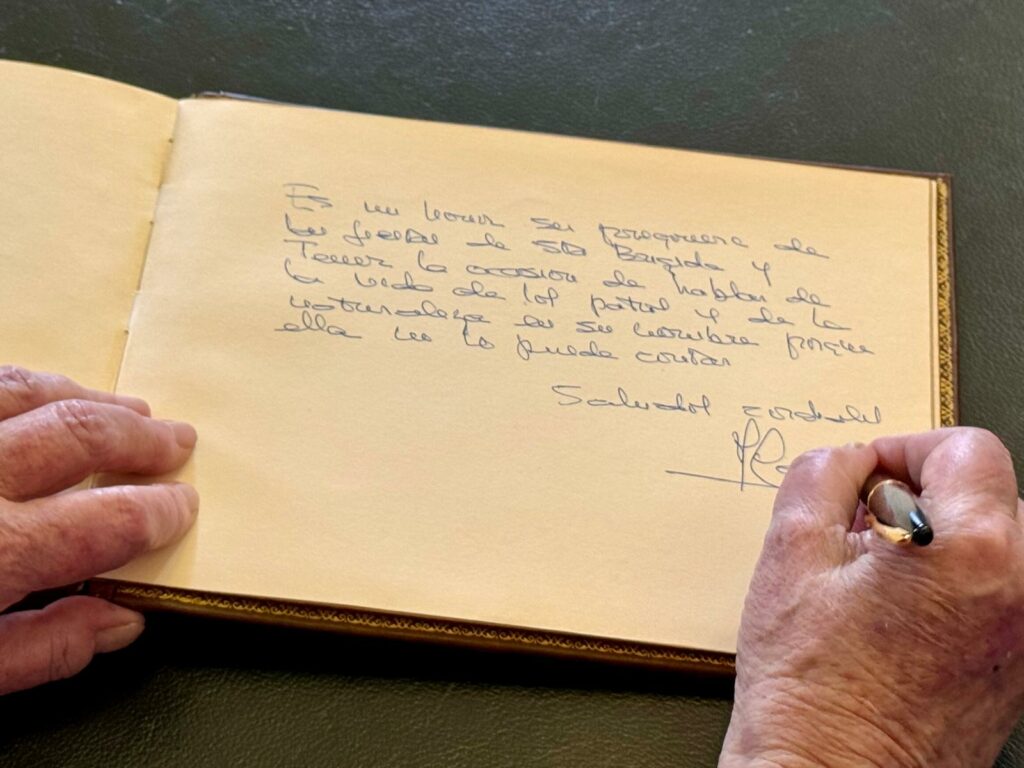 Es un honor ser pregonero de
las fiestas de Sta Brigida y
Tener la ocasion de hablar de
la vida de los y de la
naturaleza en su nombre porque
ella no lo puede contar
Salvador